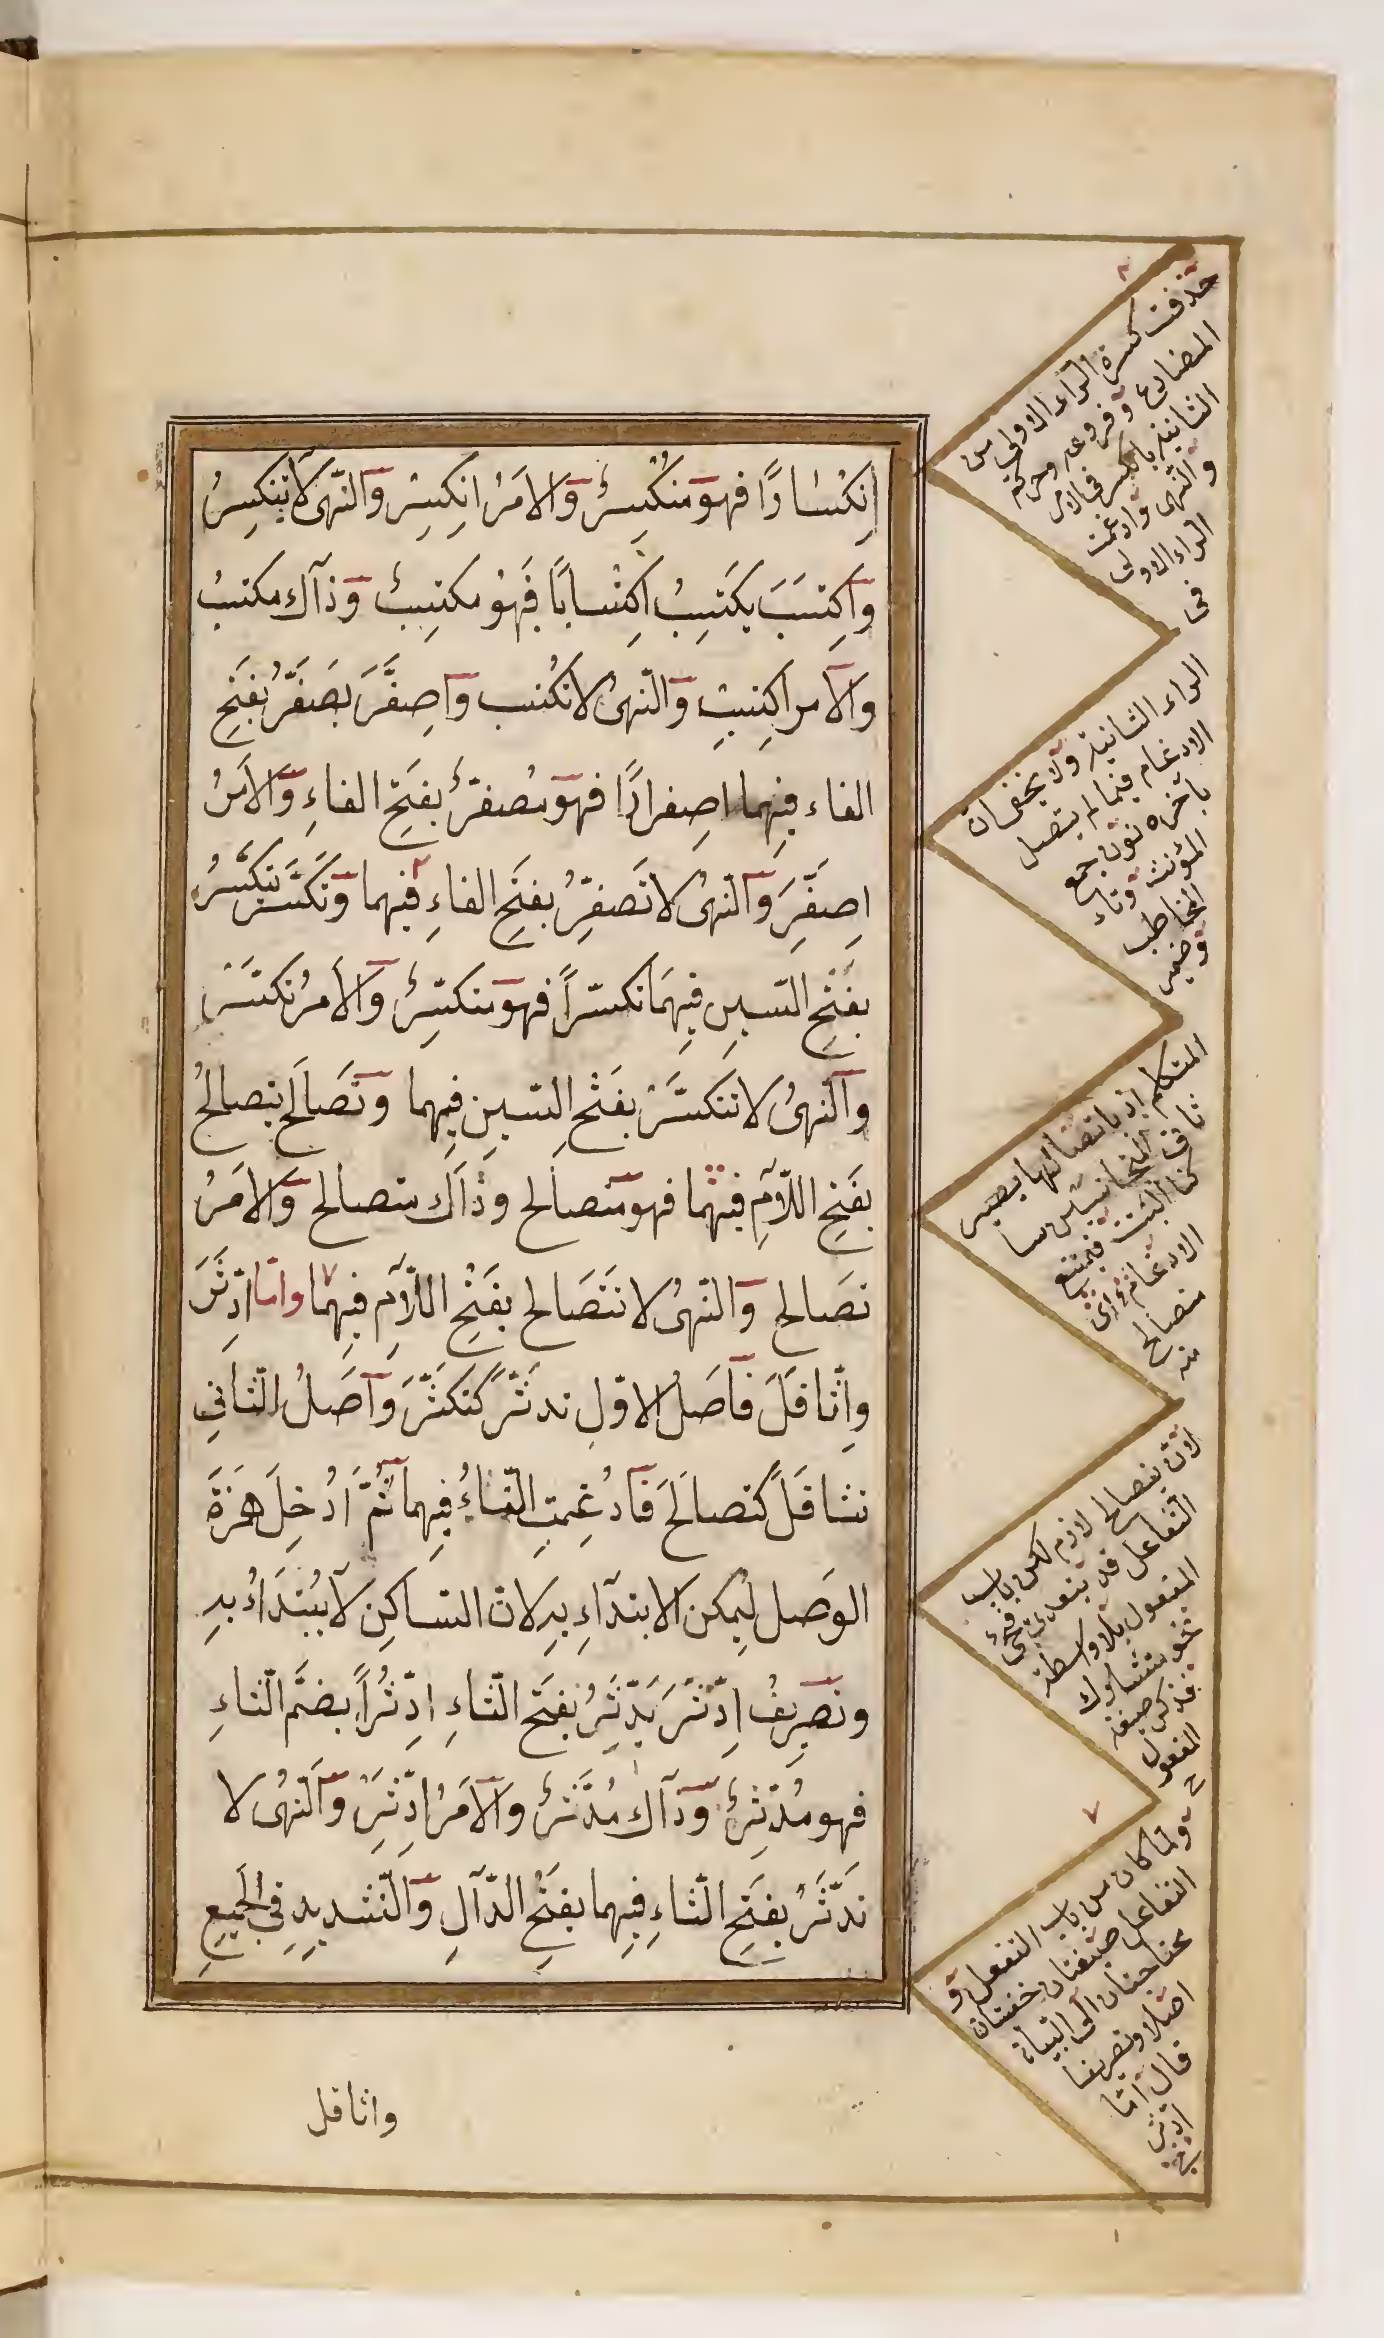 اِنْكِسَارًا فهو مُنْكَسِرٌ وَالامَرُ اِنكِسِرْ وَالنّهىُ لَا تَنكسِرْ
وَاكِتسَبَ يَكتَسِبُ اِكِتْسابًا فَهُوَ مكتسِبٌ وَذاكَ مكتسبٌ
وَالاَمر اكتسِبْ وَالنّهىُ لا تكْتسب وَاصِفَّرَ يَصَفَّرُ بفَتحِ
الفاء فيِهما اصِفرارًا فهو مُصفرٌّ بفَتحِ الفاءِ وَالاَمَرُ
اِصفَّرِ وَالنّهىُ لا تَصفرِّ بفتَحِ الفاءِ فيهما وَتكَسَّر يتكَسَّرُ
بفَتحِ السّينِ فيهِمَا تكسّراً فهو متكسِّرٌ وَالاَمرُ تكسَّرْ
وَالنهىُ لا تتكسَّرْ بفَتْحِ السّينِ فيِهما وتَصَالَحَ يتصالحُ
بفَتحِ اللاّمِ فيهما فهو متصالح وذاك متصالح وَالامَرُ
تصَالح وَالنّهىُ لا تتَصَالح بفَتْحِ اللاّمِ فيِهما وامّا ادّثَّرَ
واِثّاقَلَ فَاَصَلُ الاوّلِ تدثَّرَ كتكسَّرَ وَاَصَلُ الثّانيِ
تثاقَلَ كتصالَحَ فَادُغِمتِ التّاءُ فيِهما ثُمَّ اَدُخِلَ همَزَةَ
الوَصل ليُمكن الابتدآءِ بهِ لانّ السّاكِن لا يُبتَدَاءُ بهِ
وتصَريِفُ اِدّثَّرَ يَدّثَّرُ بفَتحَ الثّاءِ ادّثُّراً بضَمَّ الثّاءِ
فهو مُدّثِّرٌ وَذاك مُدَّثَّرٌ وَالاَمَرُ ادّثَّرْ وَالنّهىُ لا
تدَّثَّرْ بفَتَحِ الثّاءِ فيِهما بفَتْحِ الدّالِ وَالتّشديدِ فىِ الجَميعِ
واثاقل
٢
حذفت كسرة الراء الاولى من
المضارع وفروعه وحركة
الثانية بالكسر فى الامر
والنهى وادغمت
الراء الاولى
فى
الراء الثانية ولا يخفى ان
الادغام فيما لم يتصل
بآخره نون جمع
المؤنث وتاء
المخاطب
وضمير
المتكلم اذ باتصالها يصير
ثانى المتجانسين سا
كنا فيمتنع
الادغام
متصالح
منه
لانّ يتصالح لازم لكن باب
التفاعل قد يتعدى
المفعول بلا واسطة
نحو متشارك
فذكر صيغة
المفعول
٧
ولما كان من باب التفعل و
التفاعل صيغتان خفيتان
محتاجتان الى البيان
اصلا وتصريفا
قال امّا
ادّثر